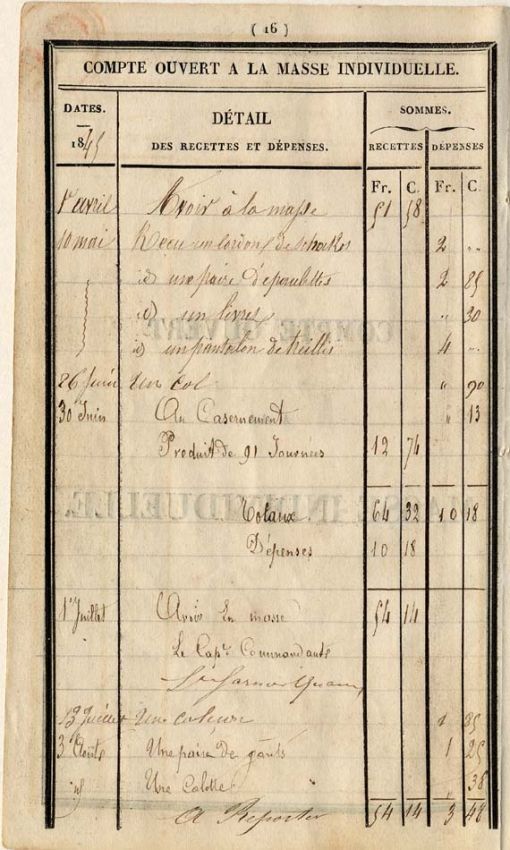 ( 16 )
COMPTE OUVERT A LA MASSE INDIVIDUELLE.
DATES. DÉTAIL SOMMES.
1845 DES RECETTES ET DÉPENSES. RECETTES DÉPENSES
Fr. C. Fr. C.
1er avril Avoir à la masse 51 58
10 mai Recu un cordon de schakos 2 "
id un paire d'epaulettes 2 85
id un livret " 30
id un pantalon de treillis 4 "
26 Juin Un col " 90
30 Juin Au Casernement " 13
Produit de 91 Journées 12 74
Totaux 64 32 10 18
Dépenses 10 18
1er Juillet Avoir en masse 54 14
Le Cap.e Commandant
13 Juillet Une 1
3 Août Une paire de gants 1 25
id Une Calotte " 38
A Reporter 54 14 3 48